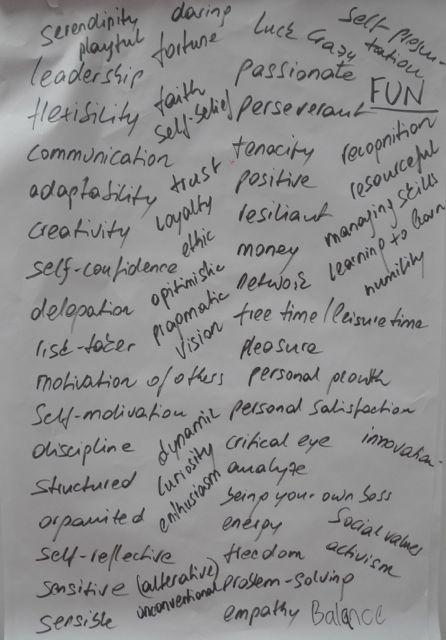 serendipity
playful
daring
fortune
Luck Crazy
Self presen-
tation
leadership
faith
passionate
FUN
flexibility
self-belief
perseverant
communication
tenacity
recognition
adaptability
trust
positive
resourceful
creativity
loyalty
resiliant
managing skills
ethic
self-confidence
money
learning to learn
opitimistic
network
humility
delegation
pragmatic
free time / leisure time
risk-taker
vision
pleasure
motivation of others
personal growth
Self-motivation
dynamic
personal satisfaction
discipline
curiosity
critical eye
innovation
structured
enthusiasm
analyze
being your own boss
organized
energy
Social values
self-reflective
freedom
activism
sensitive
(alterative)
unconventional
problem-solving
sensible
empathy
Balance